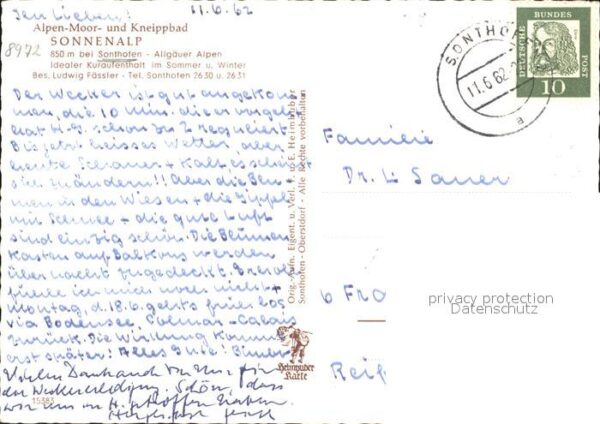 Ihr Lieben! 11.6.62
Alpen-Moor- und Kneippbad
8972 SONNENALP
850 m bei Sonthofen - Allgäuer Alpen
Idealer Kuraufenthalt im Sommer u. Winter
Bes. Ludwig Fässler - Tel. Sonthofen 2630 u. 2631
Der Wecker ist gut angekom-
men, die 10 Min. die er vorgeht
hat H.G. schon zu 2 reguliert
Bis jetzt heisses Wetter, aber
heute Schauer + Kalt es scheint
sich zu ändern!! Aber die Blu-
men in den Wiesen + die Gipfel
mit Schnee + die gute Luft
sind einzig schön. Die Blumen
Kästen auf Balkons werden
über nacht zugedeckt.
fühle ich mich noch nicht +
Montag, d. 18.6. gehts hier los
via Bodensee, Colmar - Calais
zurück. Die Wirkung kommt
erst später! Alles Gute!
Vielen Dank auch von mir für
die Weckererledigung. Schön, dass
wir uns in
15383
Orig.-Aufn. Eigent. u. Verl. H. u. E. Heimhuber
Sonthofen - Oberstdorf - Alle Rechte vorbehalten
Heimhuber
Karte
SONTHOFEN
11.6.62
a
DEUTSCHE BUNDESPOST
10
Familie
Dr. Sauer
6 FRO
Reif
privacy protection
Datenschutz